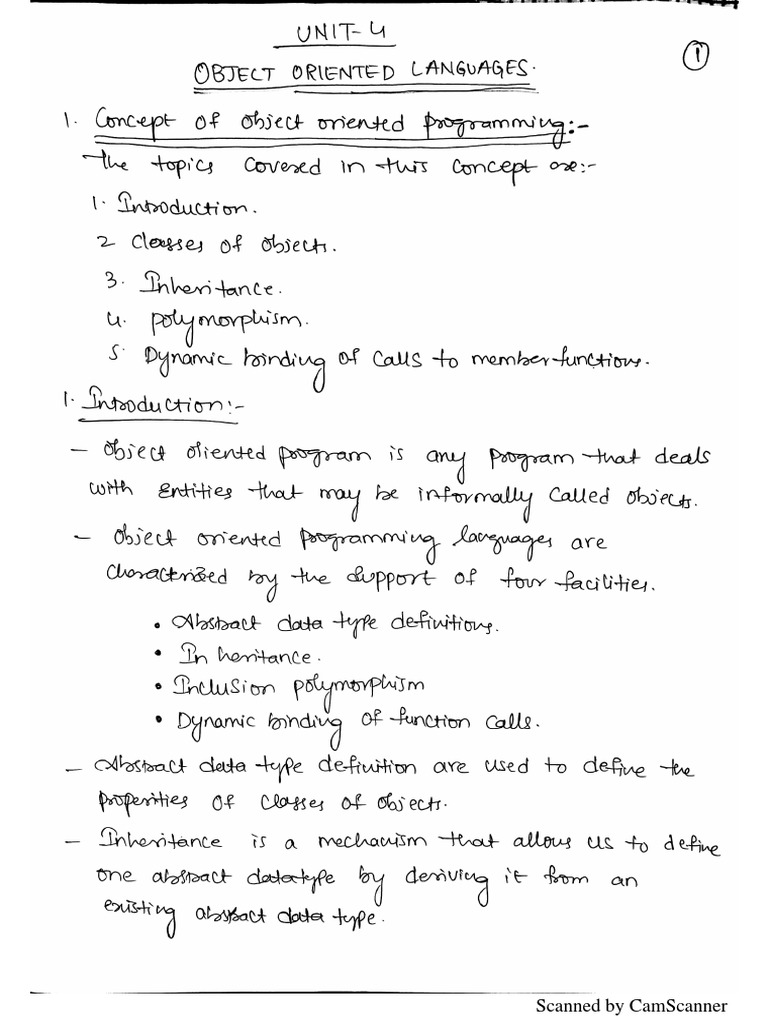 UNIT-4
①
OBJECT ORIENTED LANGUAGES.
1. Concept of object oriented programming:-
The topics covered in this concept are:-
1. Introduction.
2 Classes of objects.
3. Inheritance.
4. polymorphism.
5. Dynamic binding of calls to member functions.
1. Introduction:-
- Object oriented program is any program that deals
with entities that may be informally called objects.
- Object oriented programming languages are
characterized by the support of four facilities.
• Abstract data type definitions.
• Inheritance.
• Inclusion polymorphism
• Dynamic binding of function calls.
- Abstract data type definition are used to define the
properities of classes of objects.
- Inheritance is a mechanism that allows us to define
one abstract datatype by deriving it from an
existing abstract data type.
Scanned by CamScanner